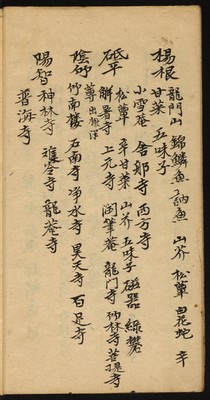 楊根 龍門山 錦鱗魚 訥魚 山芥 松蕈 白花蛇 辛
甘菜 五味子
小雪庵 舍那寺 西方寺
砥平 松蕈 辛甘菜 山芥 五味子 磁器 綠礬
解暑寺 上元寺 潤筆庵 龍門寺 竹林寺 菩提寺
陰竹 蓴
竹南樓 石南寺 淨水寺 昊天寺 百足寺
陽智 神林寺 龍庵寺
普海寺